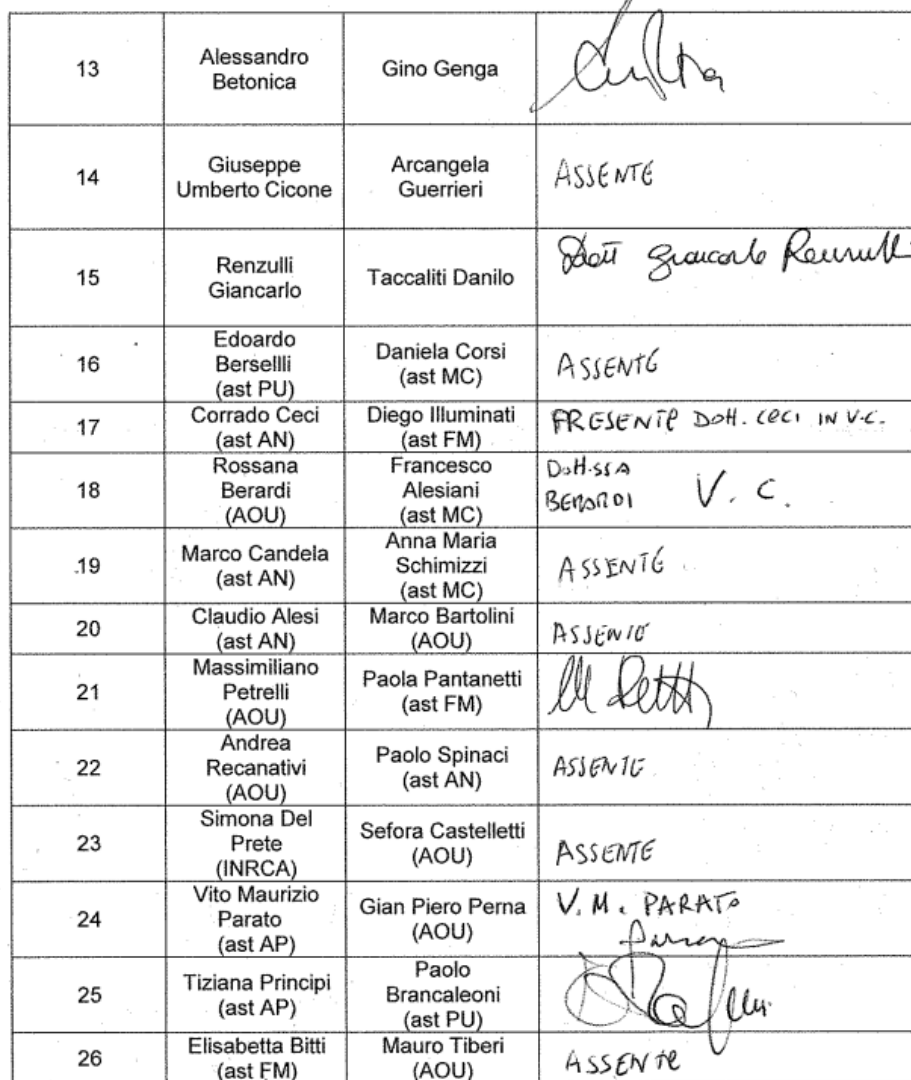 13 Alessandro Betonica Gino Genga
14 Giuseppe Umberto Cicone Arcangela Guerrieri ASSENTE
15 Renzulli Giancarlo Taccaliti Danilo Dott Giancarlo Renzulli
16 Edoardo Bersellli (ast PU) Daniela Corsi (ast MC) ASSENTE
17 Corrado Ceci (ast AN) Diego Illuminati (ast FM) PRESENTE DOTT. CECI IN V.C.
18 Rossana Berardi (AOU) Francesco Alesiani (ast MC) DOTT.SSA BERARDI V. C.
19 Marco Candela (ast AN) Anna Maria Schimizzi (ast MC) ASSENTE
20 Claudio Alesi (ast AN) Marco Bartolini (AOU) ASSENTE
21 Massimiliano Petrelli (AOU) Paola Pantanetti (ast FM)
22 Andrea Recanativi (AOU) Paolo Spinaci (ast AN) ASSENTE
23 Simona Del Prete (INRCA) Sefora Castelletti (AOU) ASSENTE
24 Vito Maurizio Parato (ast AP) Gian Piero Perna (AOU) V. M. PARATO
25 Tiziana Principi (ast AP) Paolo Brancaleoni (ast PU)
26 Elisabetta Bitti (ast FM) Mauro Tiberi (AOU) ASSENTE